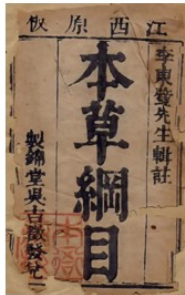 江西原板
李東璧先生輯註
本草綱目
製錦堂吉發兌